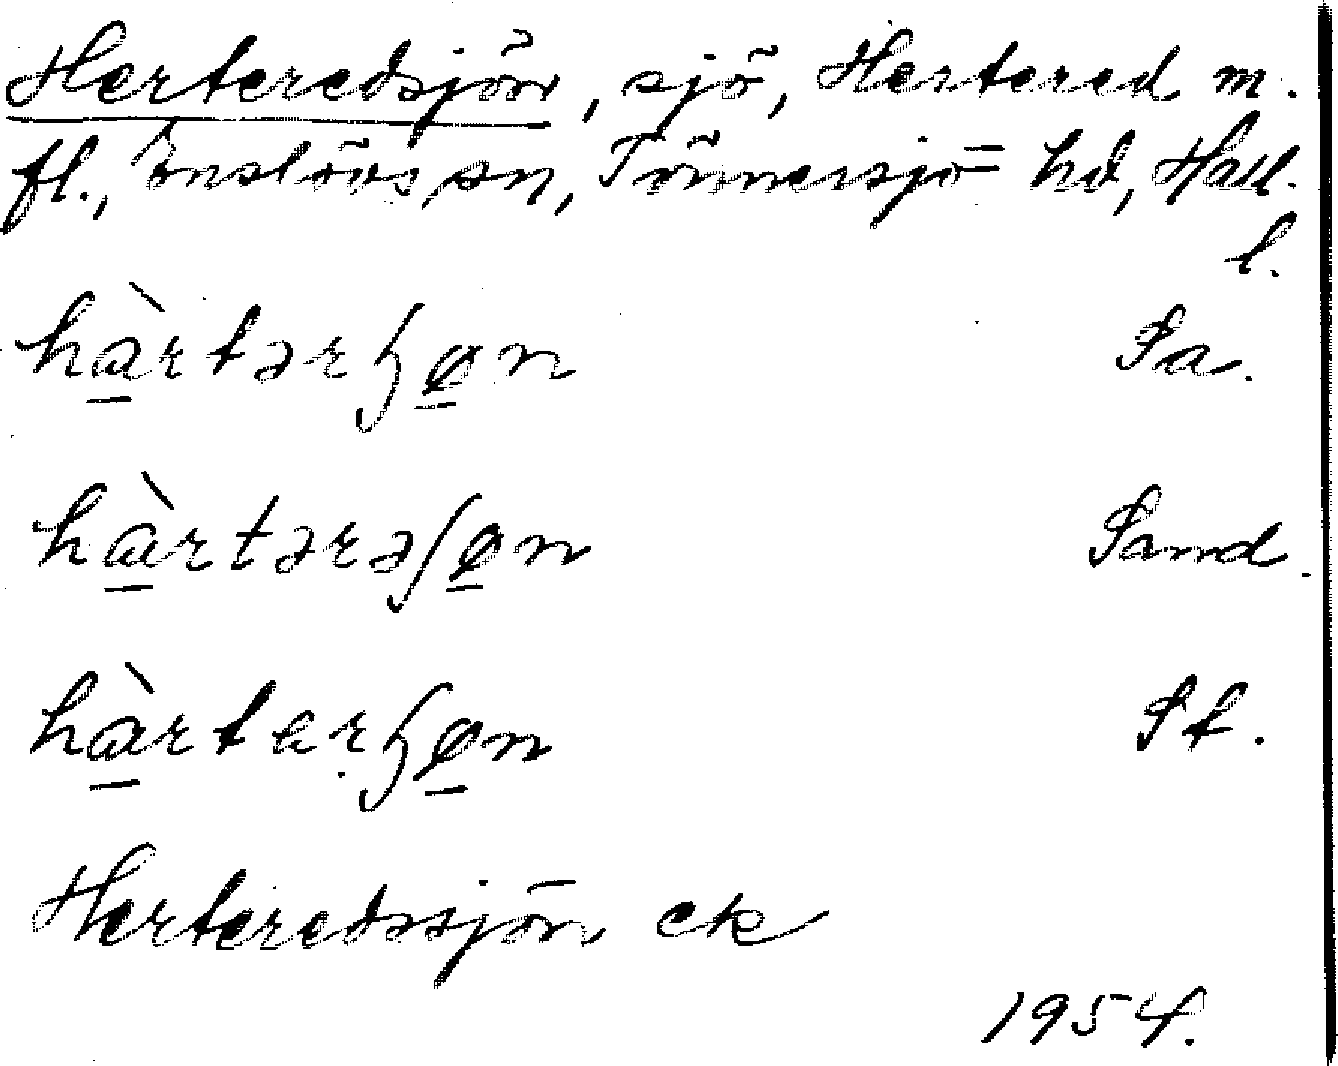 Herteredsjön, sjö, Hertered m.
fl., Enslövs sn, Tönnersjö hd, Hall.
l.
hàrtərɧøn Sa.
hàrtərəʃøn Sand.
hàrtɛrɧøn St.
Herteredssjön ek
1954.